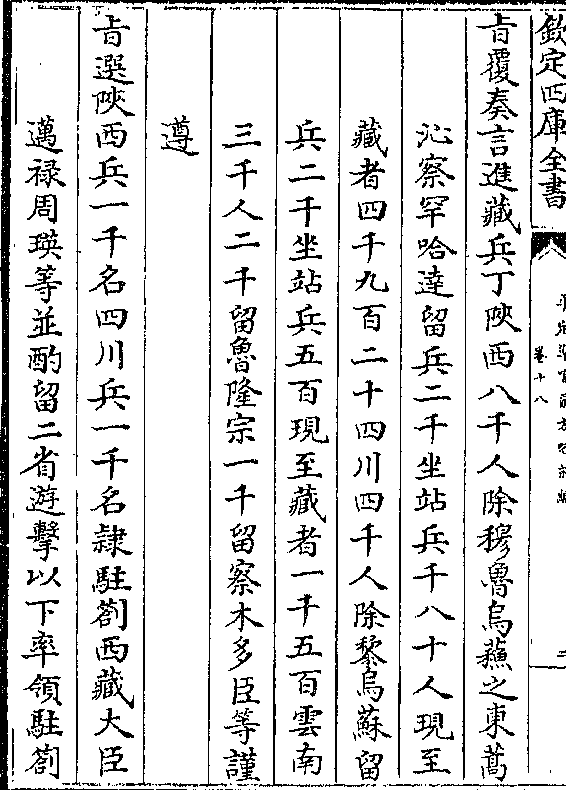 欽定四庫全書
卷十八
旨覆奏言進藏兵丁陜西八千人除穆魯烏蘇之東蒿
沁察罕哈達留兵二千坐站兵千八十人現至
藏者四千九百二十四川四千人除黎烏蘇留
兵二千坐站兵五百現至藏者一千五百雲南
三千人二千留魯隆宗一千留察木多臣等謹
遵
旨選陜西兵一千名四川兵一千名隷駐劄西藏大臣
邁禄周瑛等並酌留二省遊擊以下率領駐劄